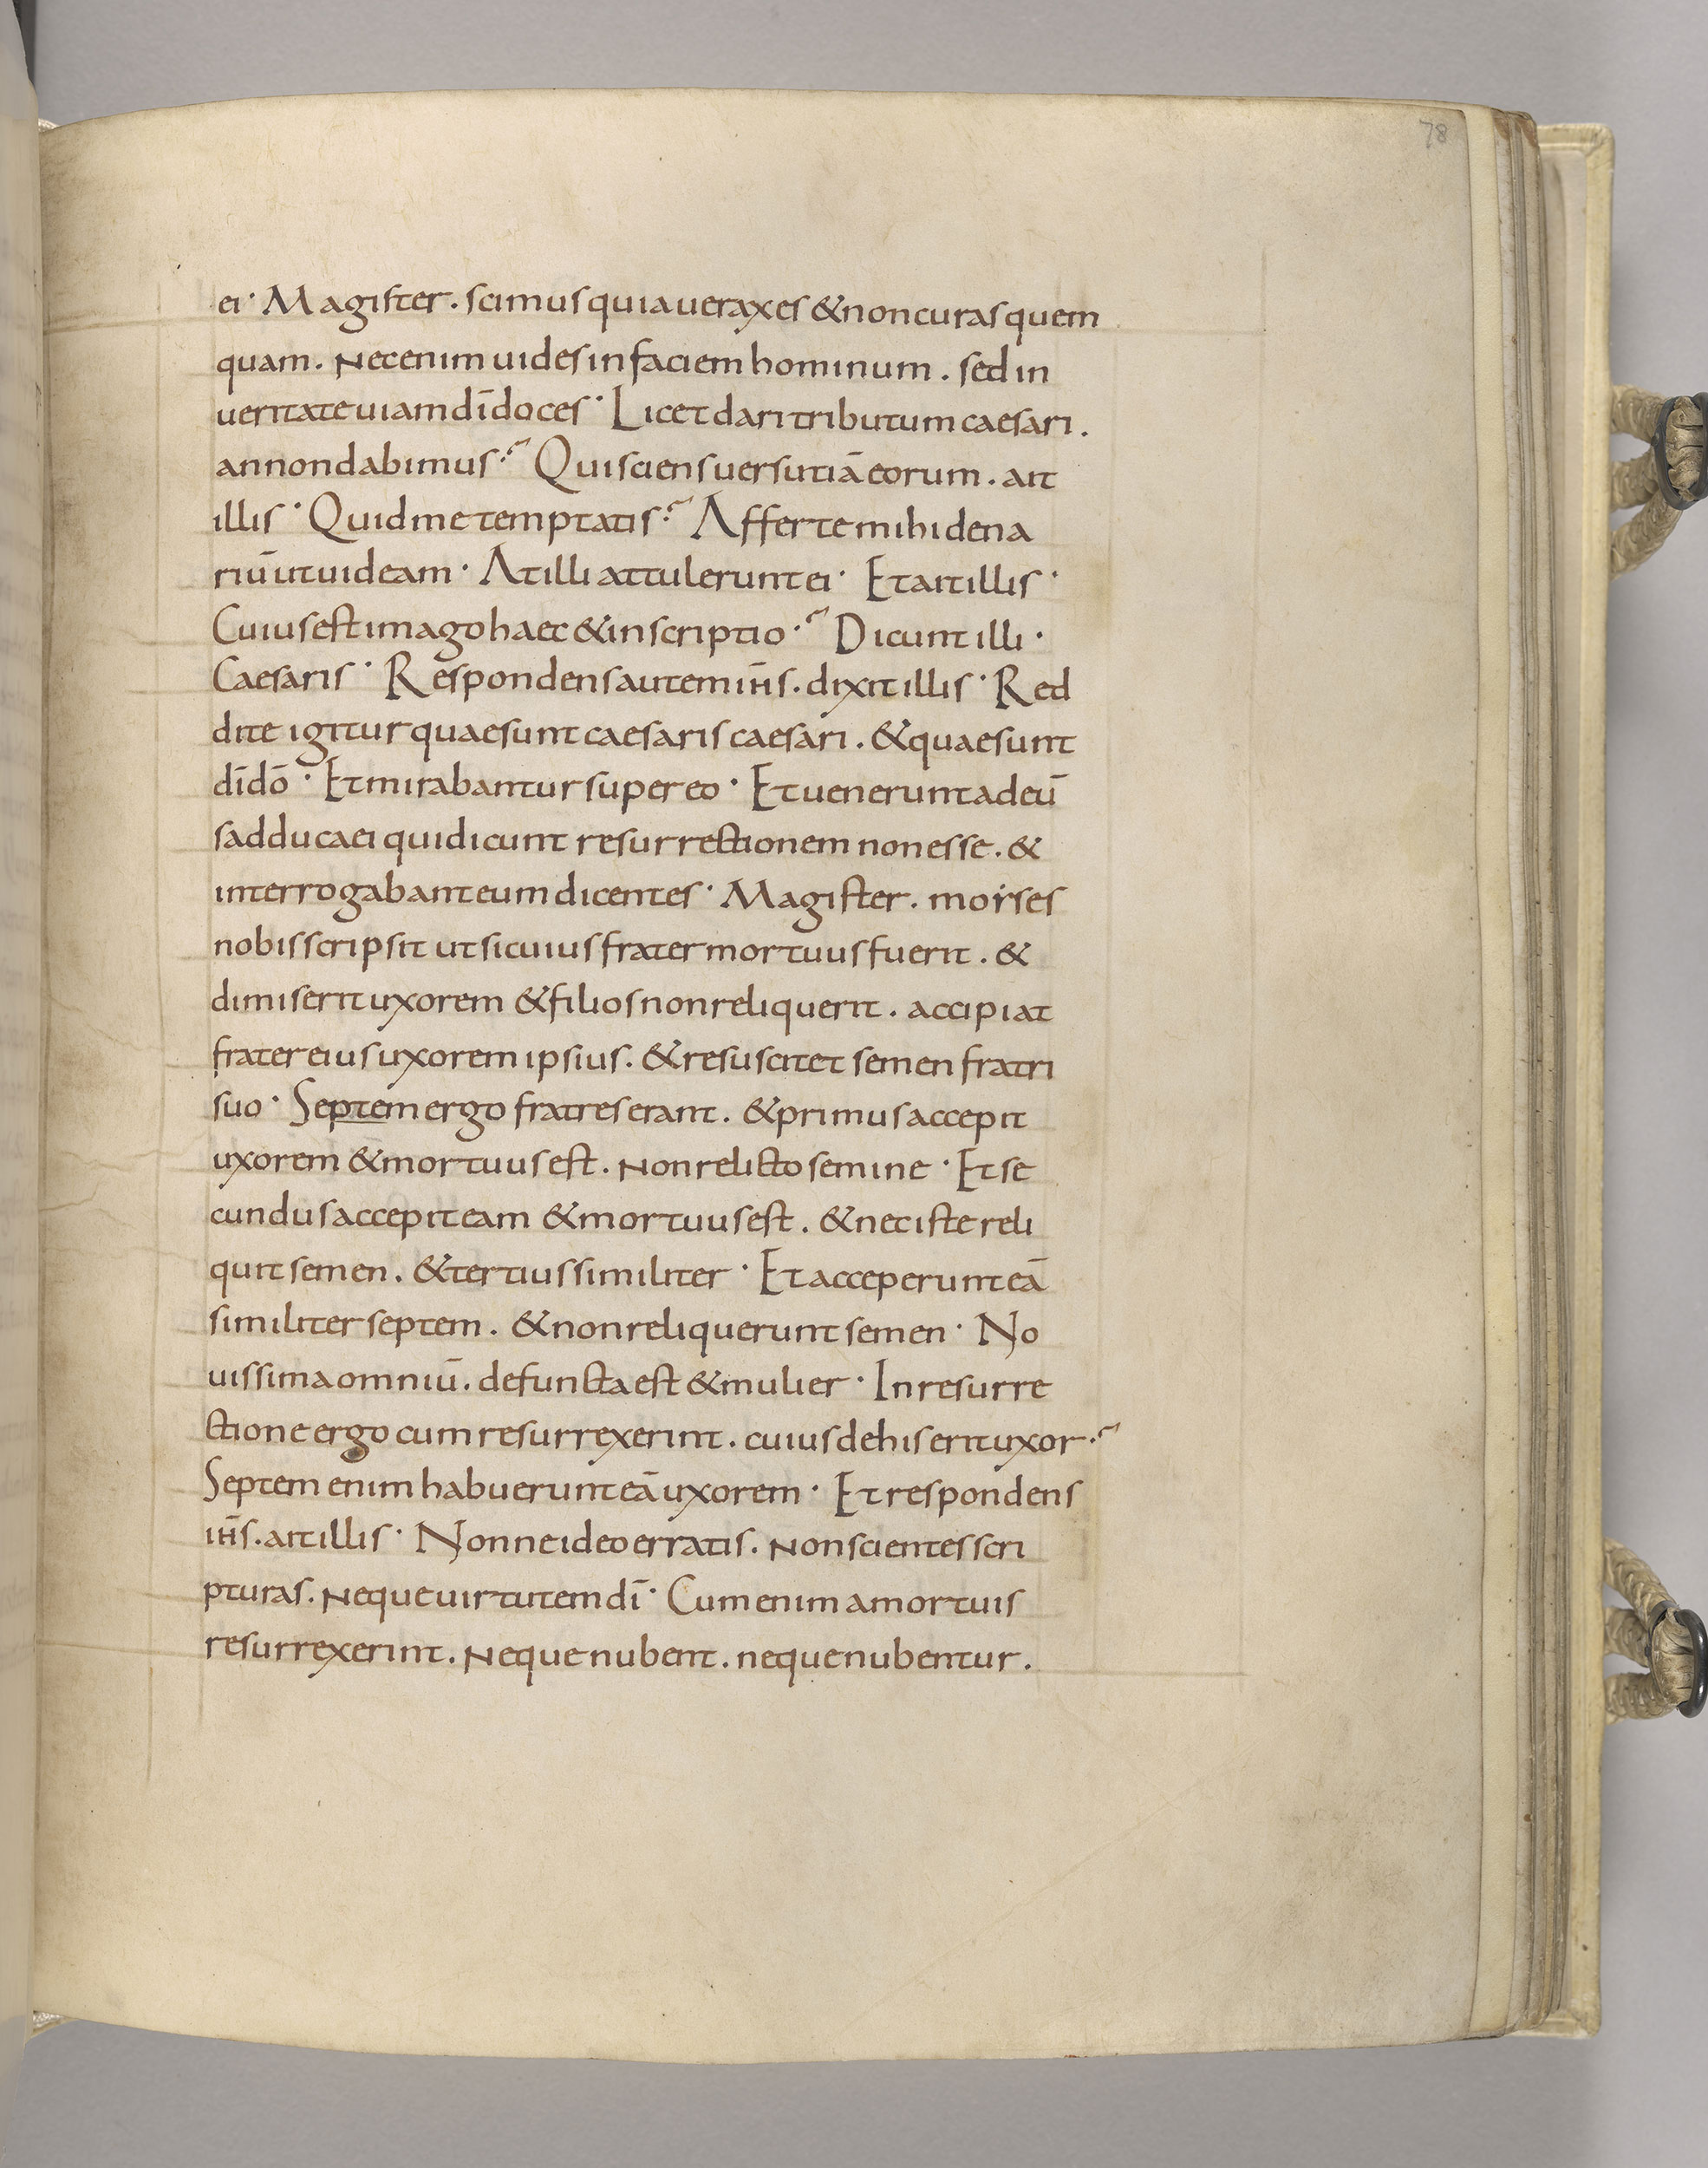 78
ei· Magister. scimus quia uerax es & non curas quem
quam. Nec enim uides in faciem hominum. sed in
ueritate uiam dī doces· Licet dari tributum caesari.
an non dabimus? Qui sciens uersutiā eorum. ait
illis· Quid me temptatis? Afferte mihi dena
riū ut uideam· At illi attulerunt ei· Et ait illis·
Cuius est imago haec & inscriptio? Dicunt illi·
Caesaris· Respondens autem ih̄s. dixit illis· Red
dite igitur quae sunt caesaris caesari. & quae sunt
dī dō· Et mirabantur super eo· Et uenerunt ad eū
sadducaei qui dicunt resurrectionem non esse. &
interrogabant eum dicentes· Magister. moẏses
nobis scripsit ut si cuius frater mortuus fuerit. &
dimiserit uxorem & filios non reliquerit. accipiat
frater eius uxorem ipsius. & resuscitet semen fratri
suo· Septem ergo fratres erant. & primus accepit
uxorem & mortuus est. Non relicto semine· Et se
cundus accepit eam & mortuus est. & nec iste reli
quit semen. & tertius similiter· Et acceperunt eā
similiter septem. & non reliquerunt semen· No
uissima omniū. defuncta est & mulier· In resurre
ctione ergo cum resurrexerint. cuius de his erit uxor?
Septem enim habuerunt eā uxorem· Et respondens
ih̄s. ait illis· Nonne ideo erratis. Non scientes scri
pturas. Neque uirtutem dī· Cum enim a mortuis
resurrexerint. Neque nubent. neque nubentur.